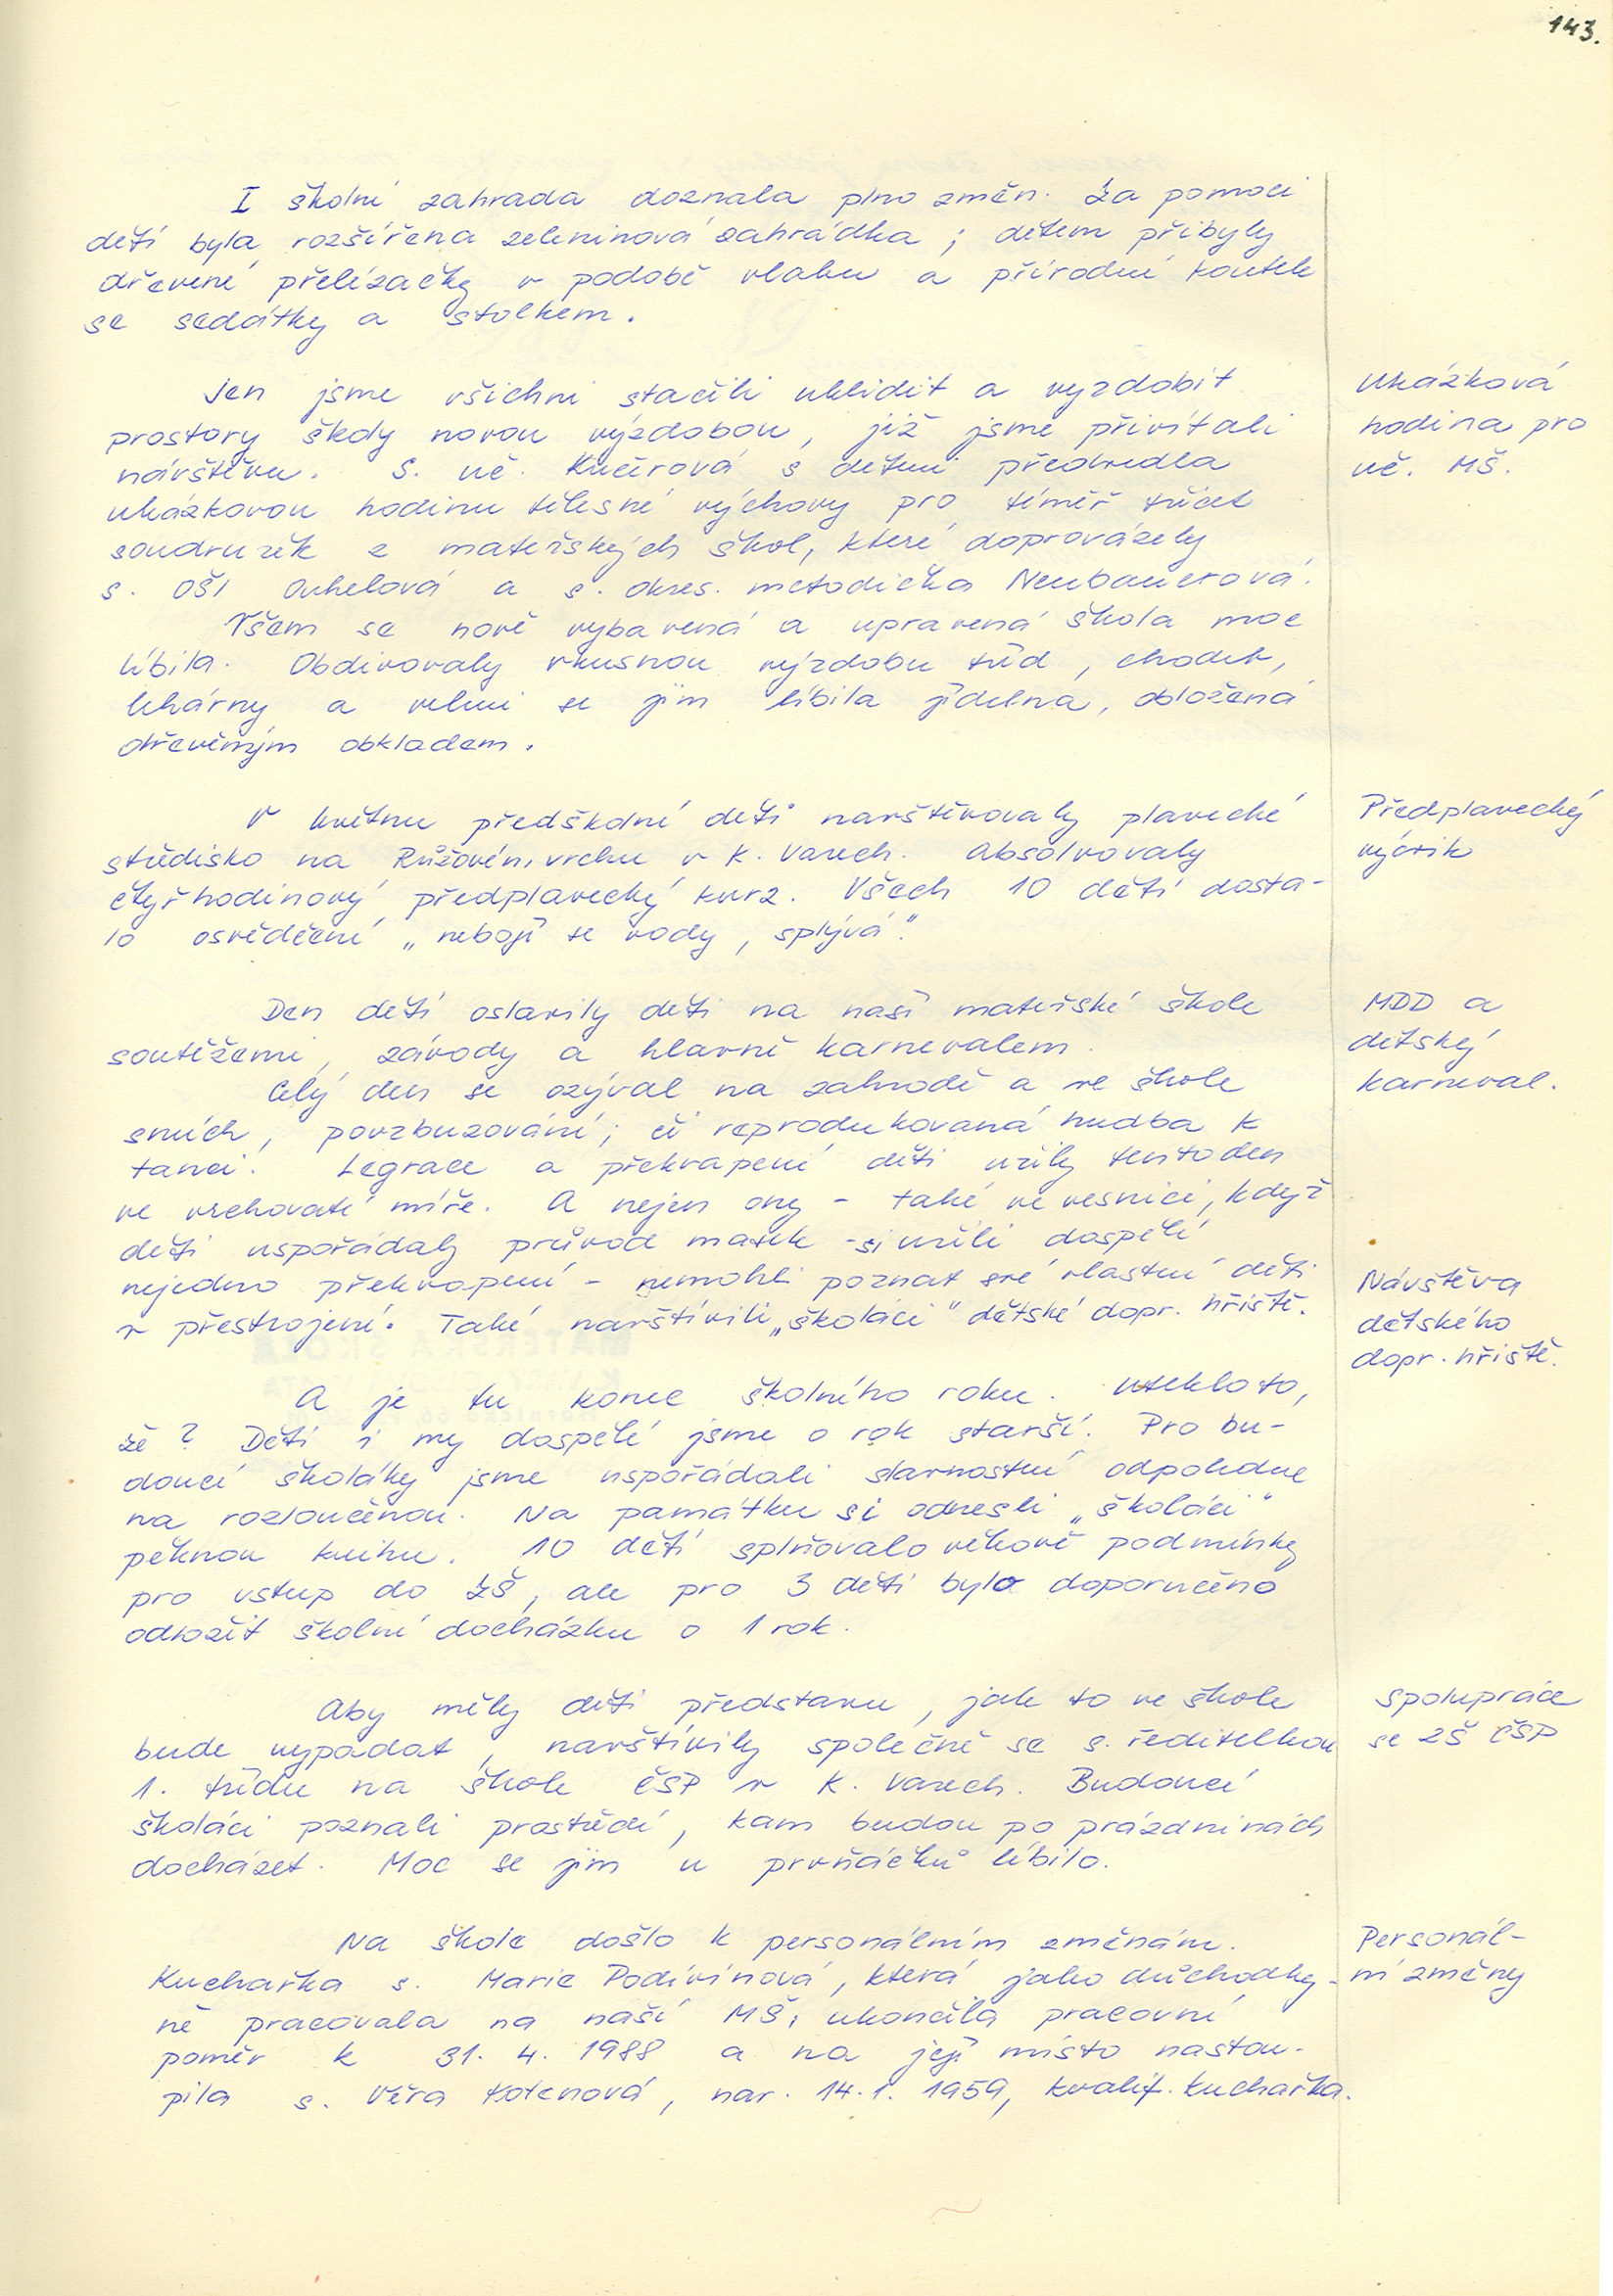 143.
I školní zahrada doznala plno změn. Za pomoci
dětí byla rozšířena zeleninová zahrádka; dětem přibyly
dřevěné přelézačky v podobě vlaku a přírodní koutek
se sedátky a stolkem.
Jen jsme všichni stačili uklidit a vyzdobit
prostory školy novou výzdobou, již jsme přivítali
návštěvu. S. uč. Kučerová s dětmi předvedla
ukázkovou hodinu tělesné výchovy pro téměř třicet
soudružek z mateřských škol, které doprovázely
s. OŠI Ouhelová a s. okres. metodička Neubauerová.
Všem se nově vybavená a upravená škola moc
líbila. Obdivovaly vkusnou výzdobu tříd, chodeb,
lekárny a velmi se jim líbila jídelna, obložená
dřevěným obkladem.
Ukázková
hodina pro
uč. MŠ.
V květnu předškolní děti navštěvovaly plavecké
středisko na Růžovém vrchu v K. Varech. Absolvovaly
čtyřhodinový předplavecký kurz. Všech 10 dětí dosta-
lo osvědčení „nebojí se vody, splývá".
Předplavecký
výcvik
Den dětí oslavily děti na naší mateřské škole
soutěžemi, závody a hlavně karnevalem.
Celý den se ozýval na zahradě a ve škole
smích, povzbuzování; či reprodukovaná hudba k
tanci. Legrace a překvapení děti užily tento den
ve vrchovaté míře. A nejen ony - také ve vesnici, když
děti uspořádaly průvod masek - si užili dospělí
nejedno překvapení - nemohli poznat své vlastní děti
v přestrojení. Také navštívili „školáci" dětské dopr. hřiště.
MDD a
dětský
karneval.
Návštěva
dětského
dopr. hřiště.
A je tu konec školního roku. Uteklo to,
že? Děti i my dospělí jsme o rok starší. Pro bu-
doucí školáky jsme uspořádali slavnostní odpoledne
na rozloučenou. Na památku si odnesli „školáci"
pěknou knihu. 10 dětí splňovalo věkově podmínky
pro vstup do ZŠ, ale pro 3 děti bylo doporučeno
odložit školní docházku o 1 rok.
Aby měly děti představu, jak to ve škole
bude vypadat, navštívily společně se s. ředitelkou
1. třídu na škole ČSP v K. Varech. Budoucí
školáci poznali prostředí, kam budou po prázdninách
docházet. Moc se jim u prvňáčků líbilo.
spolupráce
se ZŠ ČSP
Na škole došlo k personálním změnám.
Kuchařka s. Marie Podivínová, která jako důchodky-
ně pracovala na naší MŠ, ukončila pracovní
poměr k 31. 4. 1988 a na její místo nastou-
pila s. Věra Kotenová, nar. 14.1. 1959, kvalif. kuchařka.
Personál-
ní změny